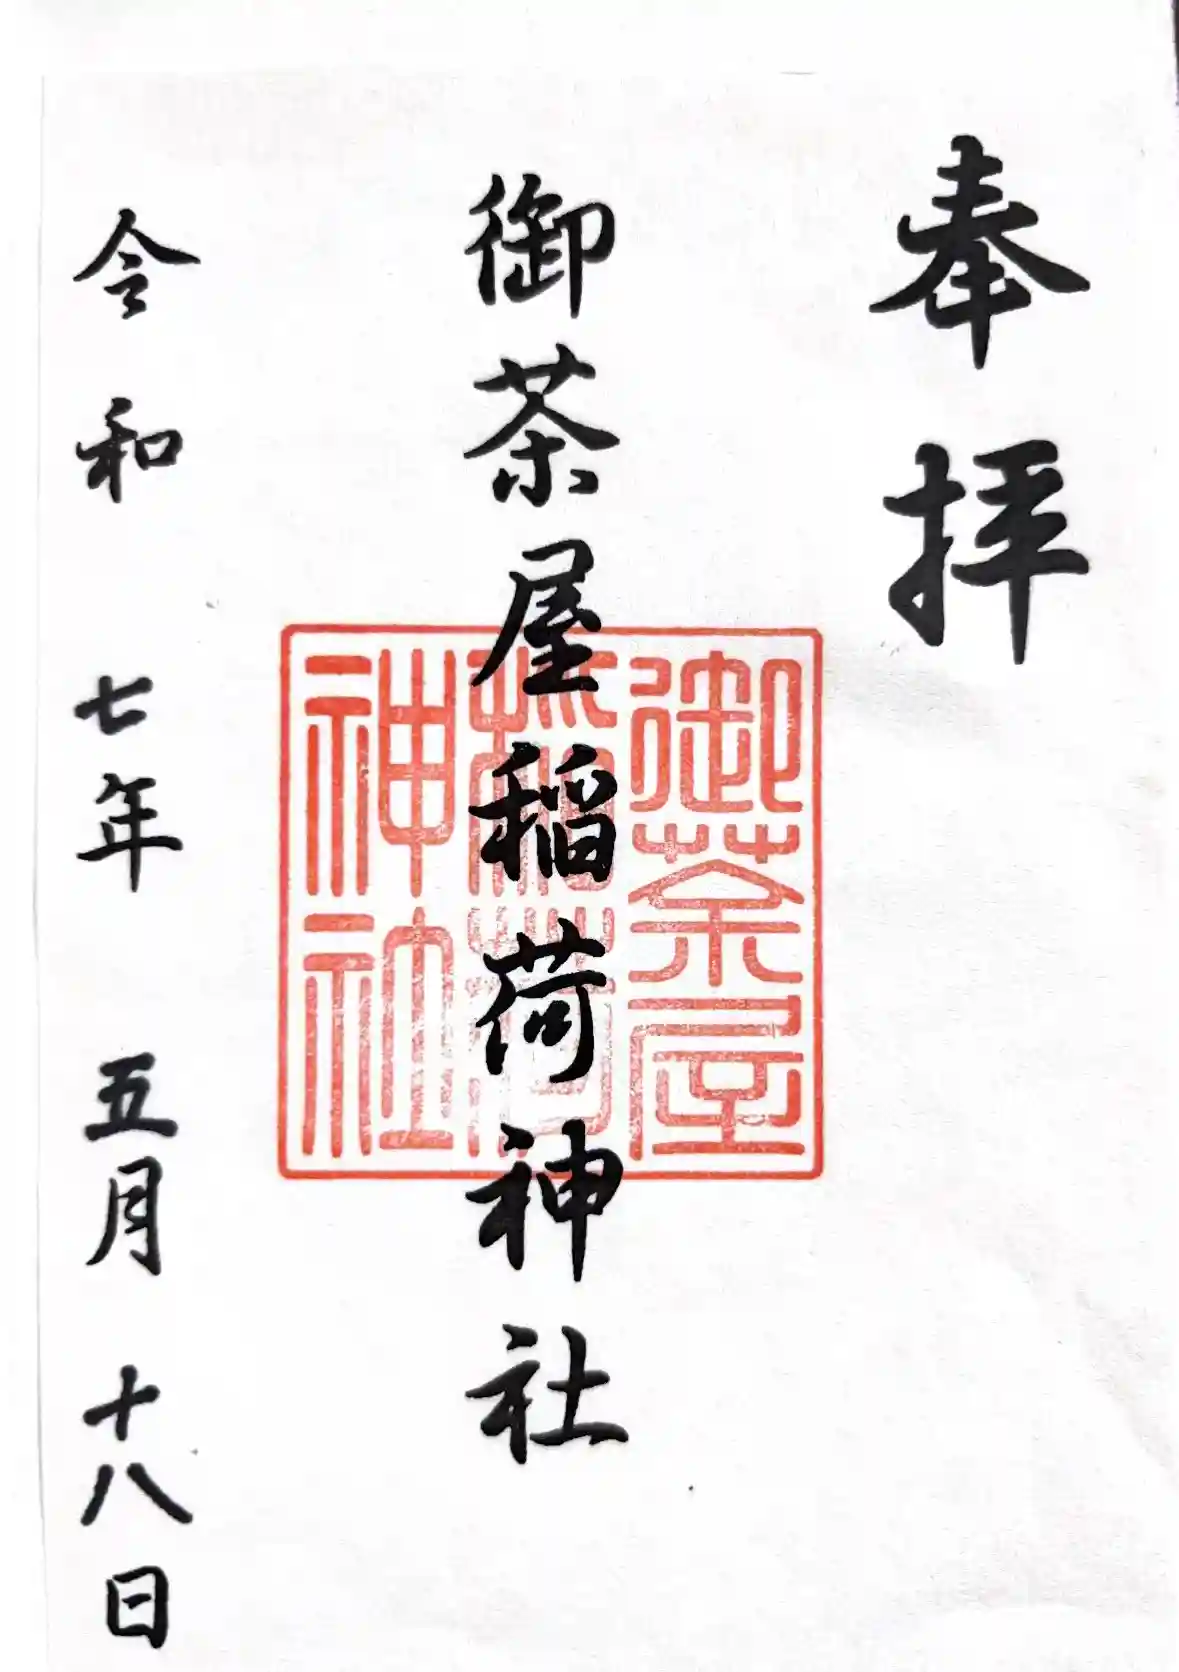 奉拝
御茶屋稲荷神社
御茶屋
稲荷
神社
令和 七年 五月 十八日